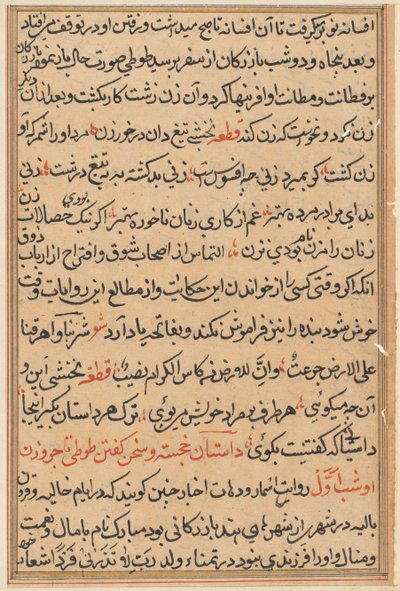 افسانهٔ نو برگرفت تا آن افسانه تا صبح میداشت و رفتن او در توقف می‌افتاد
و بعد پنجاه و دو شب بازرکان از سفر برسید طوطی صورت حال باز نمود
بر فطانت و آفرینها کرد و آن زن زشت کار بکشت و بعد از آن
زن نکرد و نخواست که زن کند قطعه نخشبی تیغ دان در خور زن مرد او را
زن کشت کر بمرد زنی چه افسوس است زنی بد کشته به به تیغ درشت زنی
بد ای برادر مرده بهتر غم از کاری زنان ناخورده بهتر اکر نیک بودی خصالات زن
زنان را مزن نام بودی نه زن التماس از اصحاب شوق و اقتراح از ارباب ذوق
آنکه اکر وقتی کسی را از خواندن این حکایات و از مطالع این روایات وقت
خوش شود بنده را نیز فراموش نکند و بفاتحه یاد آرد شعر شربنا و اهرقنا
علی الارض جرعة وللارض من کاس الکرام نصیب قطعه نخشبی این و
آن چه میکویی هر طرف بهر مراد خویش مپوی ترک هر داستان بکیر اینجا
داستانی که کفتنیست بکوی داستان خجسته و سخن کفتن طوطی تاجر و زن
او شب اوّل روایت اسمار و دهات اخبار چنین کویند که در ایام خالیه و قرون
بالیه در شهری از شهرهای هند بازرکانی بود مبارک نام با مال و نعمت
و منال و او را فرزندی نبود در تمناء ولد رب لا تذرنی فردا شعار خود